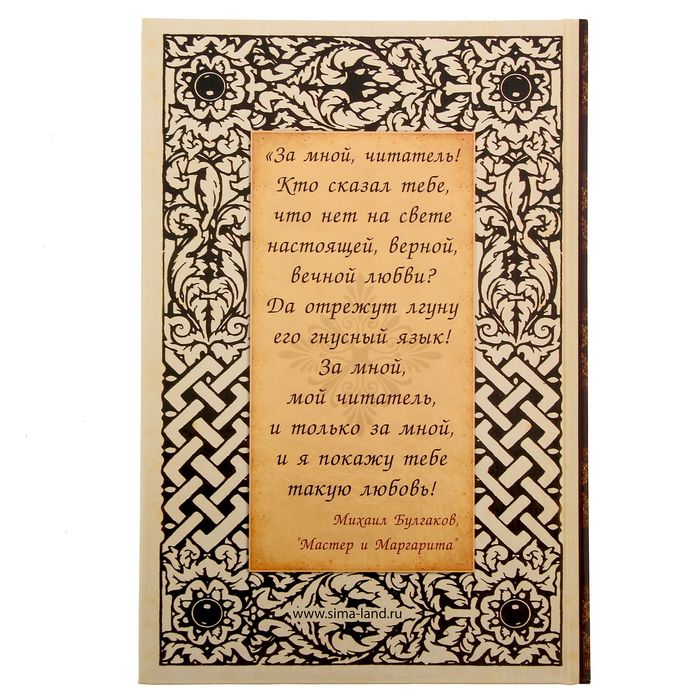 «За мной, читатель!
Кто сказал тебе,
что нет на свете
настоящей, верной,
вечной любви?
Да отрежут лгуну
его гнусный язык!
За мной,
мой читатель,
и только за мной,
и я покажу тебе
такую любовь!
Михаил Булгаков,
"Мастер и Маргарита"
www.sima-land.ru